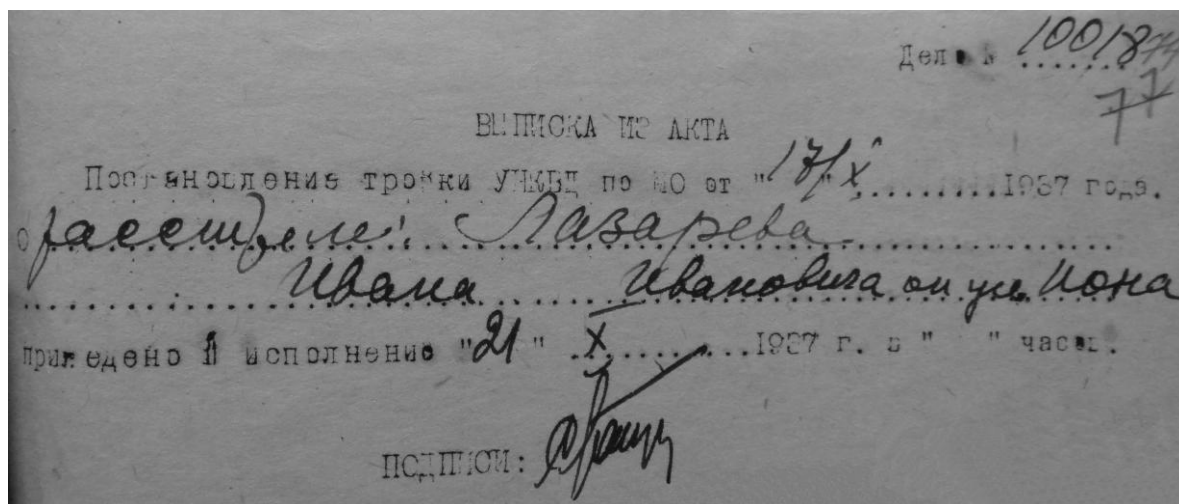 Дело № 10018
77
ВЫПИСКА ИЗ АКТА
Постановление тройки УНКВД по МО от "17/X.........1937 года.
о расстреле: Лазарева
Ивана Ивановича он
приведено в исполнение "21" X.........1937 г. в " " часов.
ПОДПИСИ: